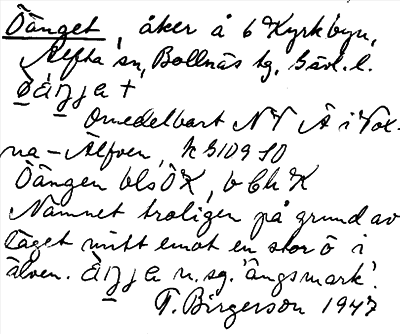 Öänget, åker å 6 Kyrkbyn,
Alfta sn, Bollnäs tg, Gävl. l.
Omedelbart NV Å i Vox-
na-Älfven, k 3109 SO
Öängen bls ÖK, b Ch K
Namnet troligen på grund av
läget mitt emot en stor ö i
älven. n. sg. 'ängsmark'.
T. Birgerson 1947